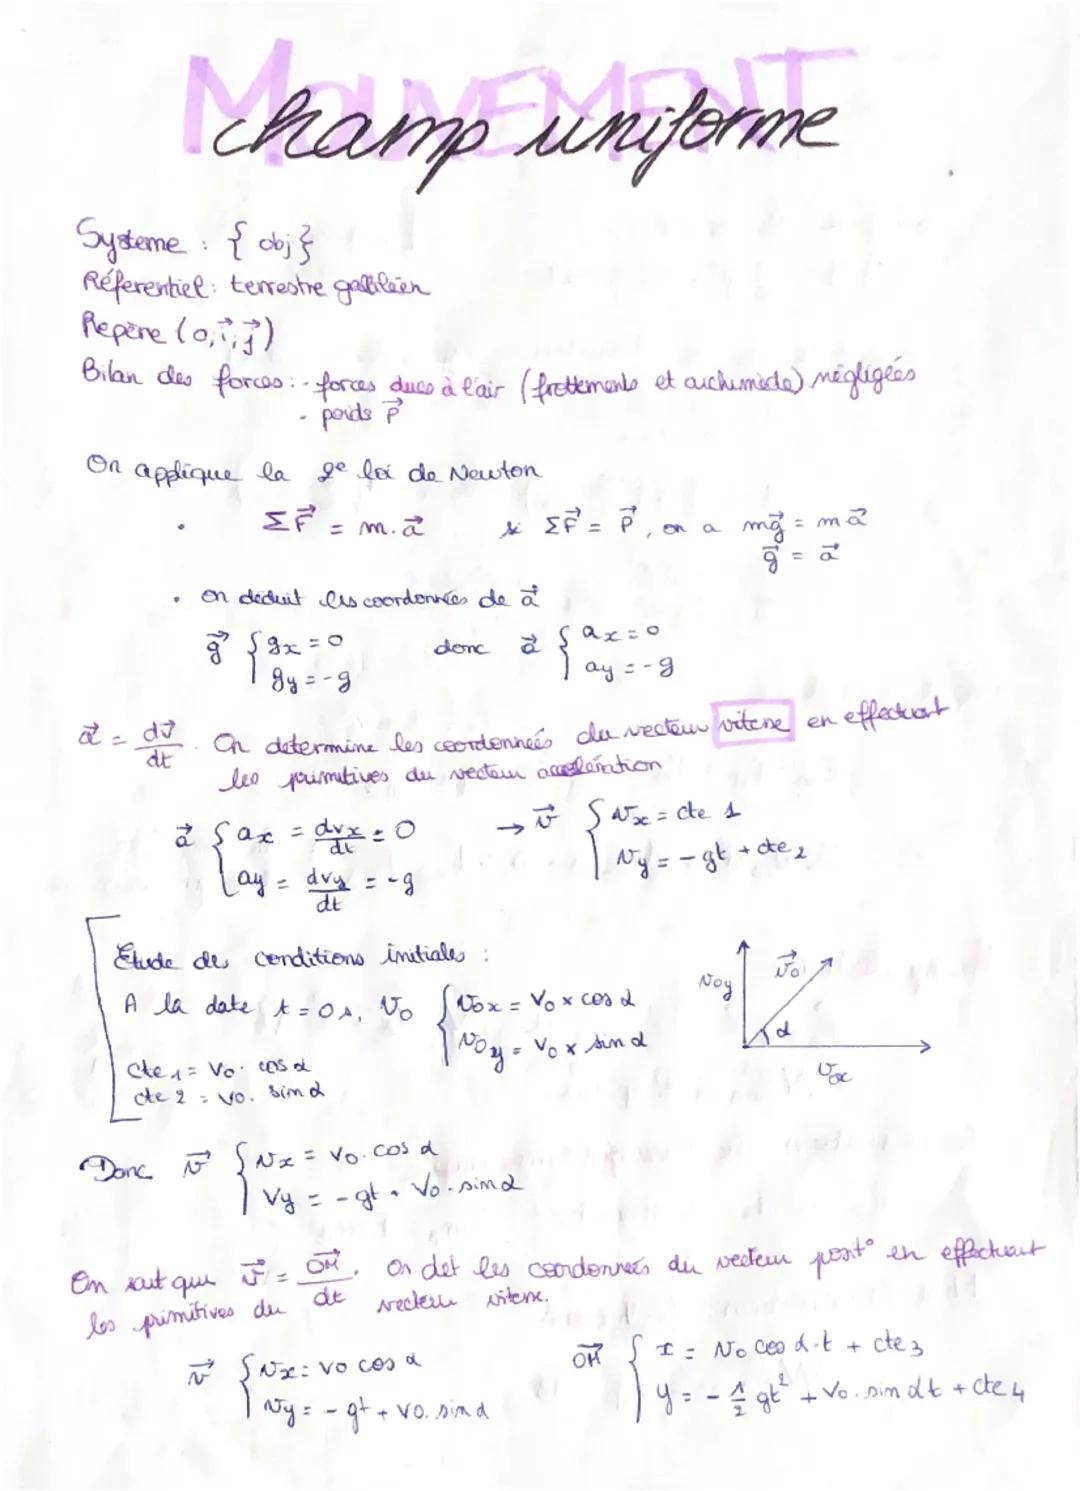 MOUVEMENT
champ uniforme
Systeme : { obj }
Réferentiel : terrestre galiléen
Repère (0, i⃗, j⃗)
Bilan des forces : - forces dues à l'air (frottements et archimède) négligées
- poids P⃗
On applique la 2e loi de Newton
• ΣF⃗ = m.a⃗ si ΣF⃗ = P⃗, on a mg⃗ = ma⃗
g⃗ = a⃗
• on déduit les coordonnées de a⃗
g⃗ { gx = 0 donc a⃗ { ax = 0
gy = -g ay = -g
a⃗ = dv⃗/dt . On determine les coordonnées du vecteur vitesse en effectuant
les primitives du vecteur accélération
a⃗ { ax = dvx/dt = 0 → v⃗ { vx = cte 1
ay = dvy/dt = -g vy = -gt + cte 2
Étude des conditions initiales :
A la date t = 0 s, V0 { v0x = V0 x cos α
v0y = V0 x sin α
cte 1 = V0 . cos α
cte 2 = V0 . sin α
v0y v⃗0 α
v0x
Donc v⃗ { vx = V0 . cos α
Vy = -gt + V0 . sin α
On sait que v⃗ = OM⃗/dt . On det les coordonnées du vecteur posit° en effectuant
les primitives du vecteur vitesse.
v⃗ { vx = V0 cos α OM⃗ { x = V0 cos α . t + cte 3
vy = -gt + V0 . sin α y = -1/2 gt² + V0 . sin αt + cte 4